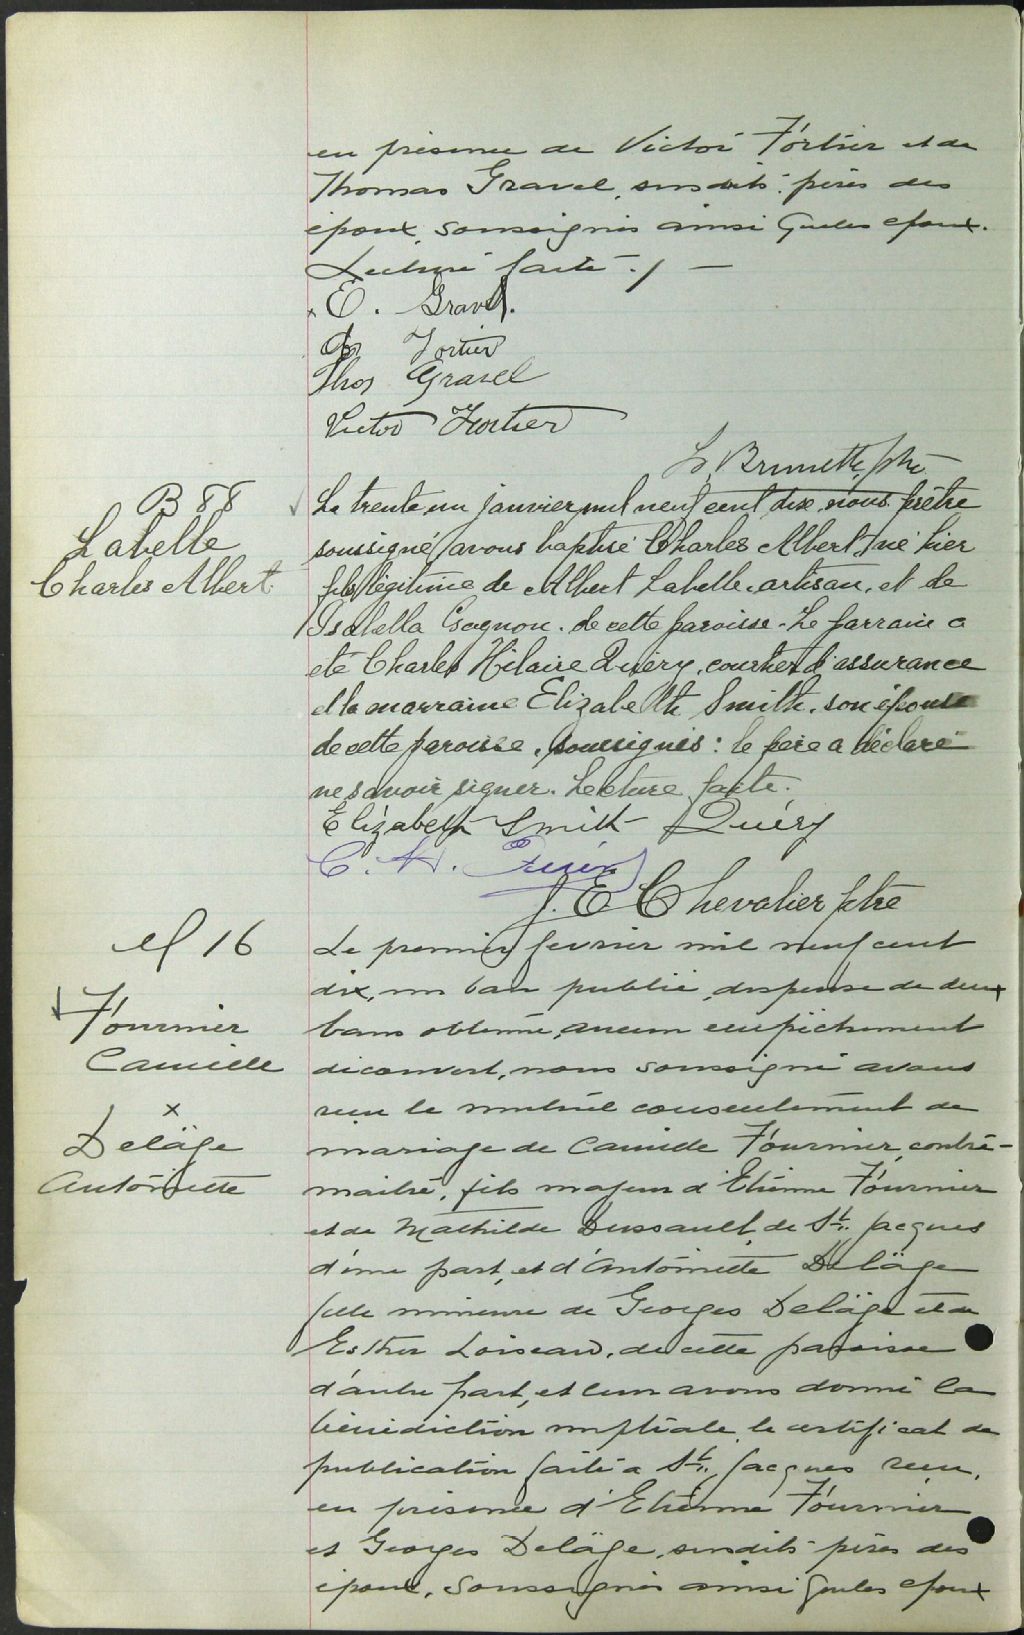 en présence de Victor Fortier et de
Thomas Gravel, susdits pères des
époux, soussignés ainsi que les époux.
Lecture faite ./ —
E. Gravel.
Fortier
Thos Gravel
Victor Fortier
Brunette, ptre
B 88
Labelle
Charles Albert
Le trente un janvier mil neuf cent dix, nous prêtre
soussigné, avons baptisé Charles Albert, né hier
fils légitime de Albert Labelle, artisan, et de
Isabella Gagnon, de cette paroisse. Le parrain a
été Charles Hilaire Quiéry, courtier d'assurance
et la marraine Elizabeth Smith, son épouse
de cette paroisse, soussignés : le père a déclaré
ne savoir signer. Lecture faite.
Elizabeth Smith Quiéry
C. H. Quiéry
J. E Chevalier ptre
M 16
Fournier
Camille
x
Deläge
Antoinette
Le premier février mil neuf cent
dix, un ban publié, dispense de deux
bans obtenue, aucun empêchement
découvert, nous soussigné avons
reçu le mutuel consentement de
mariage de Camille Fournier, contre-
maître, fils majeur d'Etienne Fournier
et de Mathilde Dussault, de St. Jacques
d'une part, et d'Antoinette Deläge
fille mineure de Georges Deläge et de
Esther Loiseau, de cette paroisse
d'autre part, et leur avons donné la
bénédiction nuptiale, le certificat de
publication faite à St. Jacques reçu,
en présence d'Etienne Fournier
et Georges Deläge, susdits pères des
époux, soussignés ainsi que les époux